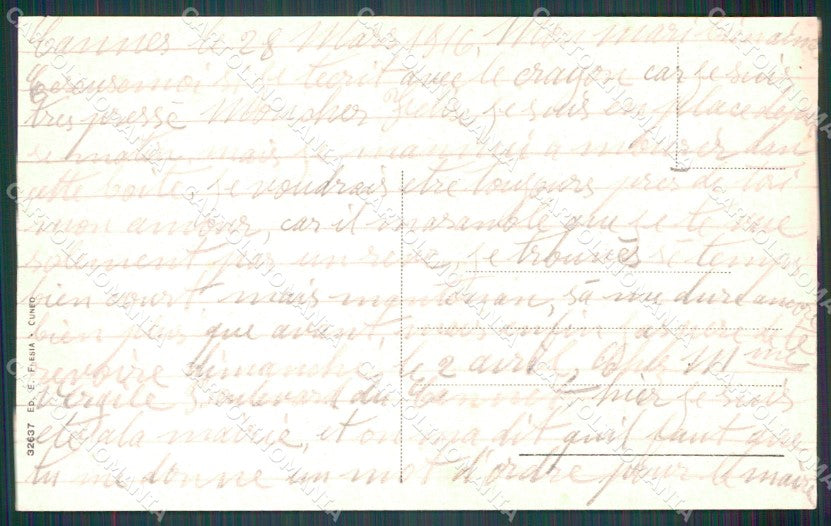 Cannes le 28 Mars 1916, Mon mari bien aimé
Excuse moi si je t'ecrit avec le crayon car je suis
tres pressé Mon cher je suis en place depuis
se matin, mais je m'annui a mourir dans
cette boite, je voudrais etre toujours pres de toi
mon amour, car il masamble que je te vue
solement par un reve, je trouvès sè temps
bien court mais maintenan, sa me dure ancore
bien plus que avant, mais enfin j'
revoire dimanche le 2 avril. Mme
Boulevard du Cannet, hier je suis
eté a la mairie, et on m'a dit qu'il faut que
tu me donne un mot d'ordre pour le maire
32637 ED. E. FLESIA - CUNEO
CARTOLINOMANIA